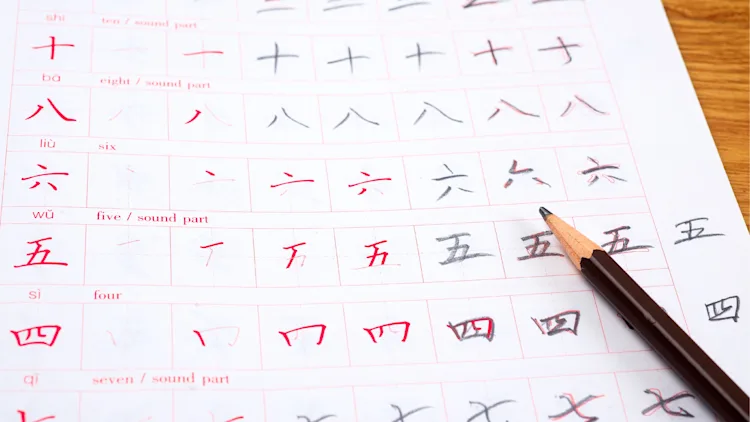 shí ten / sound part
十 十 十 十 十 十
bā eight / sound part
八 八 八 八 八 八
liù six
六 六 六 六 六
wǔ five / sound part
五 五 五 五 五 五
sì four
四 四 四 四
qī seven / sound part
七 七 七 七